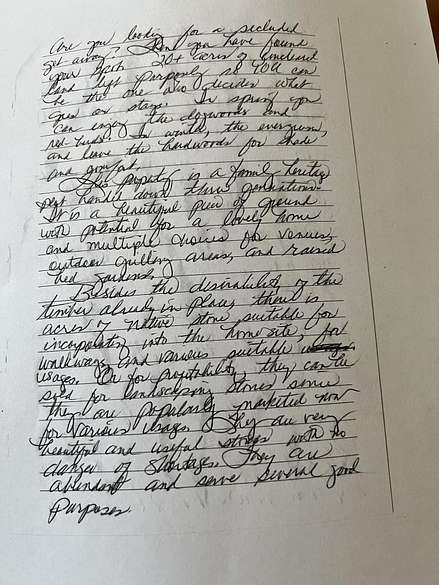 Are you looking for a secluded
get away? Then you have found
your spot. 20+ acres of timbered
land kept purposely so YOU can
be the one who decides what
goes or stays. In spring you
can enjoy the dogwoods and
red buds. In winter, the evergreens,
and leave the hardwoods for shade
and comfort.
This property is a family heritage
plot handed down three generations.
It is a beautiful piece of ground
with potential for a lovely home
and multiple choices for venues,
outdoor grilling areas, and raised
bed gardens.
Besides the desirability of the
timber already in place, there is
acres of native stone suitable for
incorporating into the home site, for
walkways and various suitable
usages. Or for profitability, they can be
sold for landscaping stones since
they are popularly marketed now
for various usages. They are very
beautiful and useful stones with no
danger of shortages. They are
abundant and serve several good
purposes.